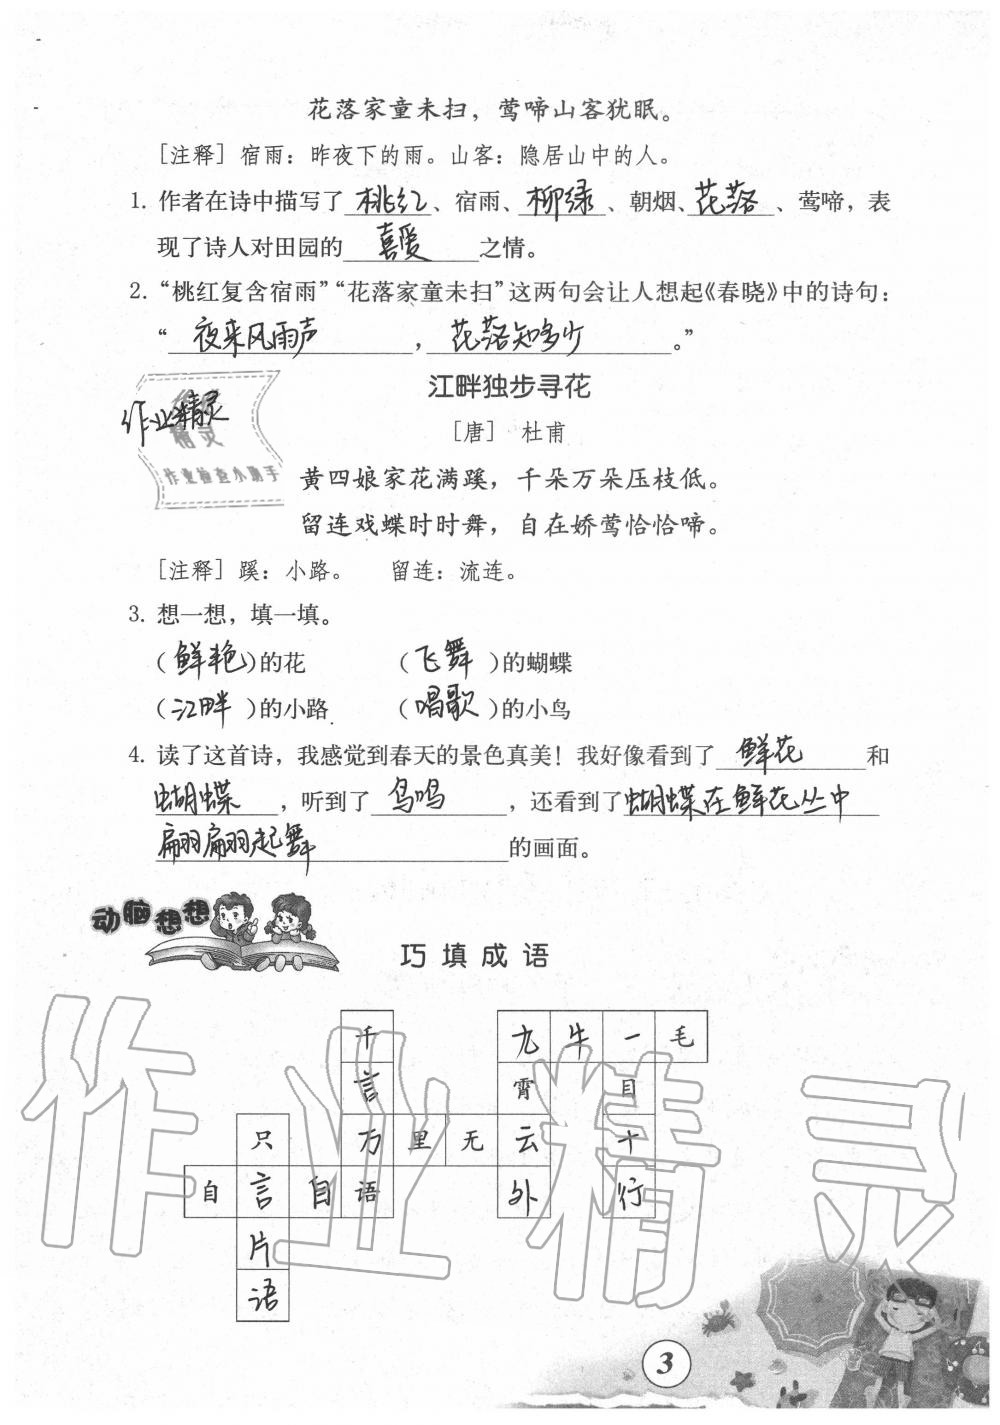 花落家童未扫，莺啼山客犹眠。
［注释］宿雨：昨夜下的雨。山客：隐居山中的人。
1. 作者在诗中描写了 桃红 、宿雨、 柳绿 、朝烟、 花落 、莺啼，表
现了诗人对田园的 喜爱 之情。
2. “桃红复含宿雨”“花落家童未扫”这两句会让人想起《春晓》中的诗句：
“ 夜来风雨声 ， 花落知多少 。”
江畔独步寻花
作业精灵
精灵
作业检查小助手
［唐］ 杜甫
黄四娘家花满蹊，千朵万朵压枝低。
留连戏蝶时时舞，自在娇莺恰恰啼。
［注释］蹊：小路。 留连：流连。
3. 想一想，填一填。
（鲜艳）的花 （飞舞）的蝴蝶
（江畔）的小路 （唱歌）的小鸟
4. 读了这首诗，我感觉到春天的景色真美！我好像看到了 鲜花 和
蝴蝶 ，听到了 鸟鸣 ，还看到了蝴蝶在鲜花丛中
翩翩翩翩起舞 的画面。
动脑想想
巧填成语
千 九牛一毛
言 霄 目
只 万里无云 十
自言自语 外 行
片
语
作业精灵
3